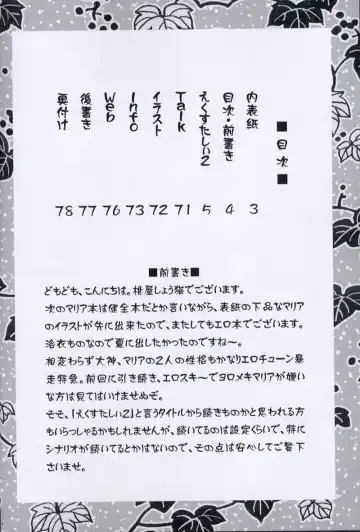 ■目次■
内表紙 3
目次・前書き 4
えくすたしぃ2 5
Talk 71
イラスト 72
Info 73
Web 76
後書き 77
奥付け 78
■前書き■
どもども、こんにちは。桃屋しょう猫でございます。
次のマリア本は健全本だとか言いながら、表紙の下品なマリア
のイラストが先に出来たので、またしてもエロ本でございます。
浴衣ものなので夏に出したかったのですね～。
相変わらず大神、マリアの2人の性格もかなりエロチューン暴
走特急。前回に引き続き、エロスキ～でヨロメキマリアが嫌い
な方は見てはいけませぬぞ。
そそ、「えくすたしぃ2」と言うタイトルから続きものかと思われる方
もいらっしゃるかもしれませんが、続いてるのは設定くらいで、特に
シナリオが続いてるとかはないので、その点は安心してご覧下
さいませ。